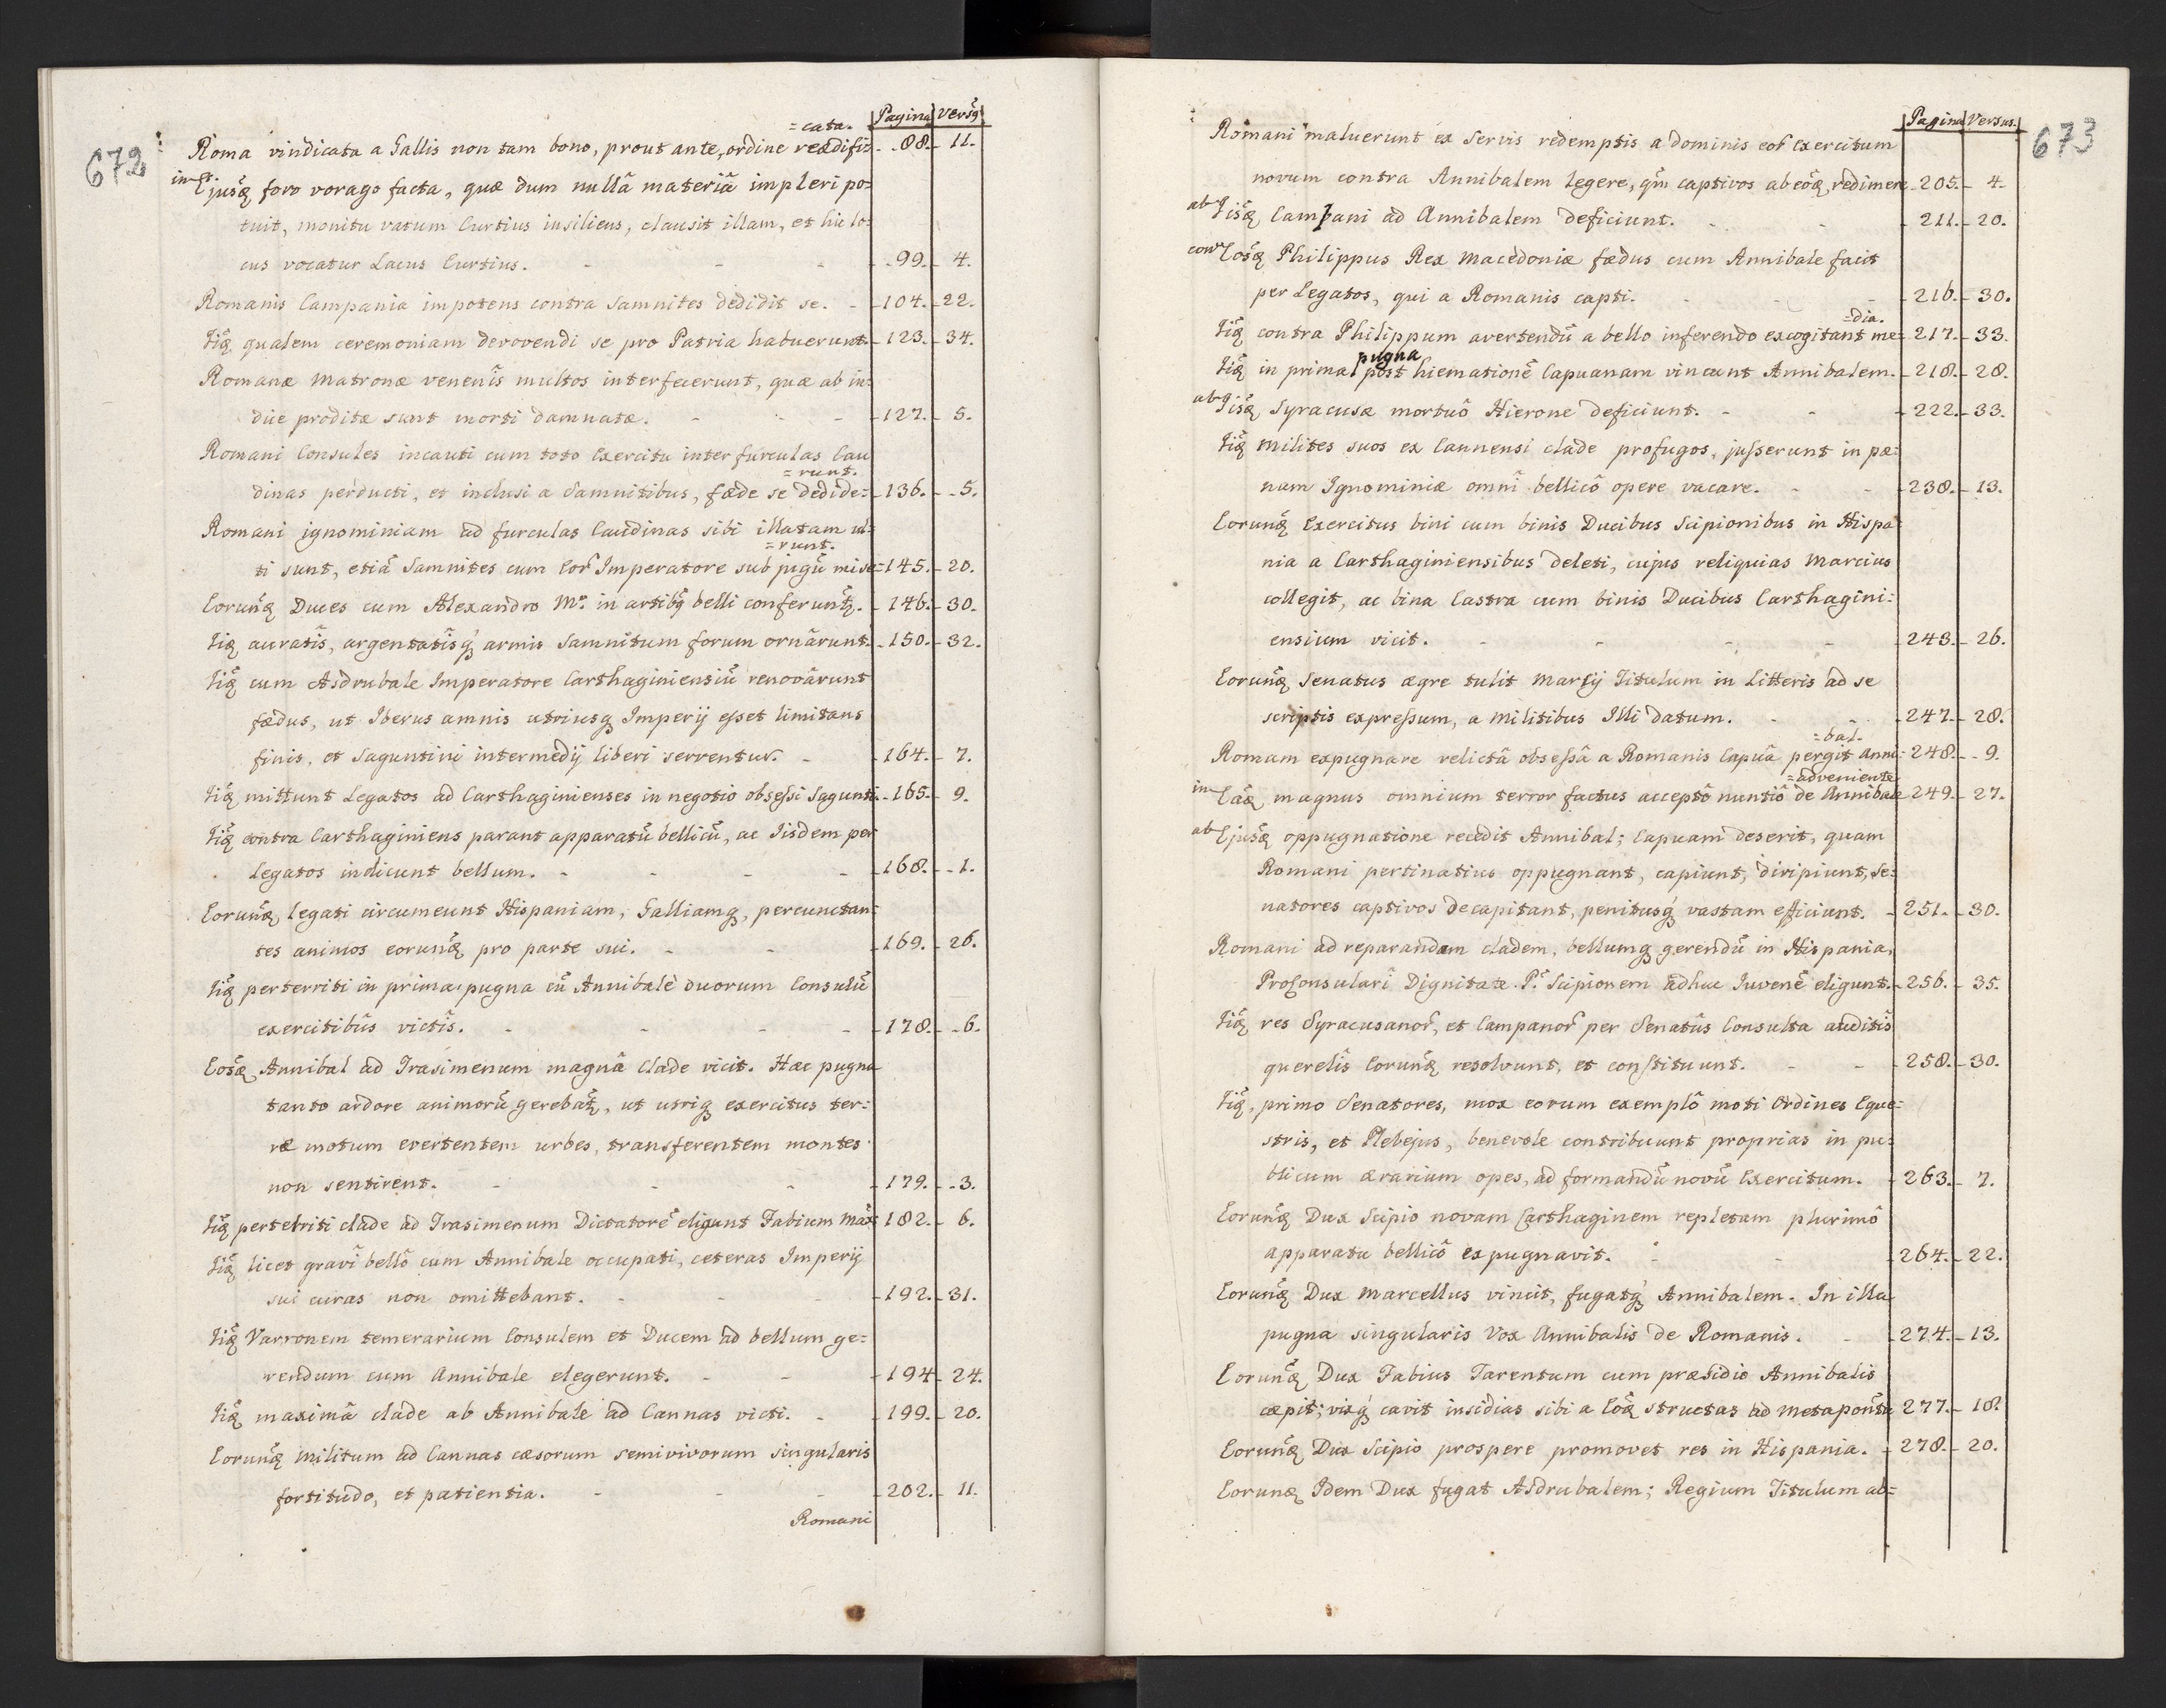 672
Pagina Versq́
=cata.
Roma vindicata a Gallis non tam bono, prout ante, ordine reædifi= 88. 11.
in Ejusq́ foro vorago facta, quæ dum nullâ materiâ impleri po=
tuit, monitu vatum Curtius insiliens, clausit illam, et hic lo=
cus vocatur Lacus Curtius. 99. 4.
Romanis Campania impotens contra Samnites dedidit se. 104. 22.
Iiq́ qualem ceremoniam devovendi se pro Patria habuerunt. 123. 34.
Romanæ Matronæ venenîs multos interfecerunt, quæ ab in=
dice proditæ sunt morti damnatæ. 127. 5.
Romani Consules incauti cum toto Exercitu inter furculas Cau
=runt.
dinas perducti, et inclusi a Samnitibus, fœde se dedide= 136. 5.
Romani ignominiam ad furculas Caudinas sibi illatam ul=
=runt.
ti sunt, etiā Samnites cum Eor̃ Imperatore sub jugū mise= 145. 20.
Eorunq́ Duces cum Alexandro Mo. in artibq́ belli conferunt̃. 146. 30.
Iiq́ auratîs, argentatîsq́ armis Samnitum forum ornârunt. 150. 32.
Iiq́ cum Asdrubale Imperatore Carthaginiensiū renovârunt
fœdus, ut Iberus amnis utriusq́ Imperij esset limitans
finis, et Saguntini intermedij liberi serventur. 164. 7.
Iiq́ mittunt Legatos ad Carthaginienses in negotio obsessi Sagunti. 165. 9.
Iiq́ contra Carthaginiens parant apparatū bellicū, ac Iisdem per
Legatos indicunt bellum. 168. 1.
Eorunq́ legati circumeunt Hispaniam, Galliamq́, percunctan=
tes animos eorunq́ pro parte sui. 169. 26.
Iiq́ perterriti in prima pugna cū Annibale duorum Consulū
exercitibûs victîs. 178. 6.
Eosq́ Annibal ad Trasimenum magnâ clade vicit. Hæc pugna
tanto ardore animorū gerebat̃, ut utriq́ exercitus ter=
ræ motum evertentem urbes, transferentem montes
non sentirent. 179. 3.
Iiq́ perterriti clade ad Trasimenum Dictatorē eligunt Fabium Max 182. 6.
Iiq́ licet gravî bellô cum Annibale occupati, ceteras Imperij
sui curas non omittebant. 192. 31.
Iiq́ Varronem temerarium Consulem et Ducem ad bellum ge=
rendum cum Annibale elegerunt. 194 24.
Iiq́ maximâ clade ab Annibale ad Cannas victi. 199. 20.
Eorunq́ militum ad Cannas cæsorum semivivorum singularis
fortitudo, et patientia. 202. 11.
Romani
673
Pagina Versus.
Romani maluerunt ex servis redemptis a dominis eor̃ Exercitum
novum contra Annibalem legere, qm̃ captivos ab eôq́ redimere 205. 4.
ab Iisq́ Campani ad Annibalem deficiunt. 211. 20.
con Eosq́ Philippus Rex Macedoniæ fœdus cum Annibale facit
per Legatos, qui a Romanis capti. 216. 30.
=dia.
Iiq́ contra Philippum avertendū a bello inferendo excogitant me= 217. 33.
pugna
Iiq́ in prima post hiemationē Capuanam vincunt Annibalem. 218. 28.
ab Iisq́ Syracusæ mortuô Hierone deficiunt. 222. 33.
Iiq́ milites suos ex Cannensi clade profugos, jusserunt in pœ=
nam Ignominiæ omnî bellicô opere vacare. 238. 13.
Eorunq́ Exercitus bini cum binis Ducibus Scipionibus in Hispa
nia a Carthaginiensibus deleti, cujus reliquias Marcius
collegit, ac bina Castra cum binis Ducibus Carthagini=
ensium vicit. 243. 26.
Eorunq́ Senatus ægre tulit Marcij Titulum in Litteris ad se
scriptis expressum, a militibus Illi datum. 247. 28.
=bal.
Romam expugnare relictâ obsessâ a Romanis Capuâ pergit Anni= 248. 9.
=adveniente
in Eaq́ magnus omnium terror factus acceptô nuntiô de Annibale 249. 27.
ab Ejusq́ oppugnatione recedit Annibal; Capuam deserit, quam
Romani pertinatius oppugnant, capiunt, diripiunt, Se=
natores captivos decapitant, penitusq́ vastam efficiunt. 251. 30.
Romani ad reparandam cladem, bellumq́ gerendū in Hispania,
ProConsularî Dignitate P. Scipionem adhuc Iuvenē eligunt. 256. 35.
Iiq́ res Syracusanor̃, et Campanor̃ per Senatûs Consulta auditîs
querelîs Eorunq́ resolvunt, et constituunt. 258. 30.
Iiq́, primo Senatores, mox eorum exemplô moti Ordines Eque=
stris, et Plebejus, benevole contribuunt proprias in pu=
blicum ærarium opes, ad formandū novū Exercitum. 263. 7.
Eorunq́ Dux Scipio novam Carthaginem repletam plurimô
apparatu bellicô expugnavit. 264. 22.
Eorunq́ Dux Marcellus vincit, fugatq́ Annibalem. In illa
pugna singularis Vox Annibalis de Romanis. 274. 13.
Eorunq́ Dux Fabius Tarentum cum præsidio Annibalis
cæpit; vixq́ cavit insidias sibi a Eôq́ structas ad Metapontū 277. 18.
Eorunq́ Dux Scipio prospere promovet res in Hispania. 278. 20.
Eorunq́ Idem Dux fugat Asdrubalem; Regium Titulum ab=